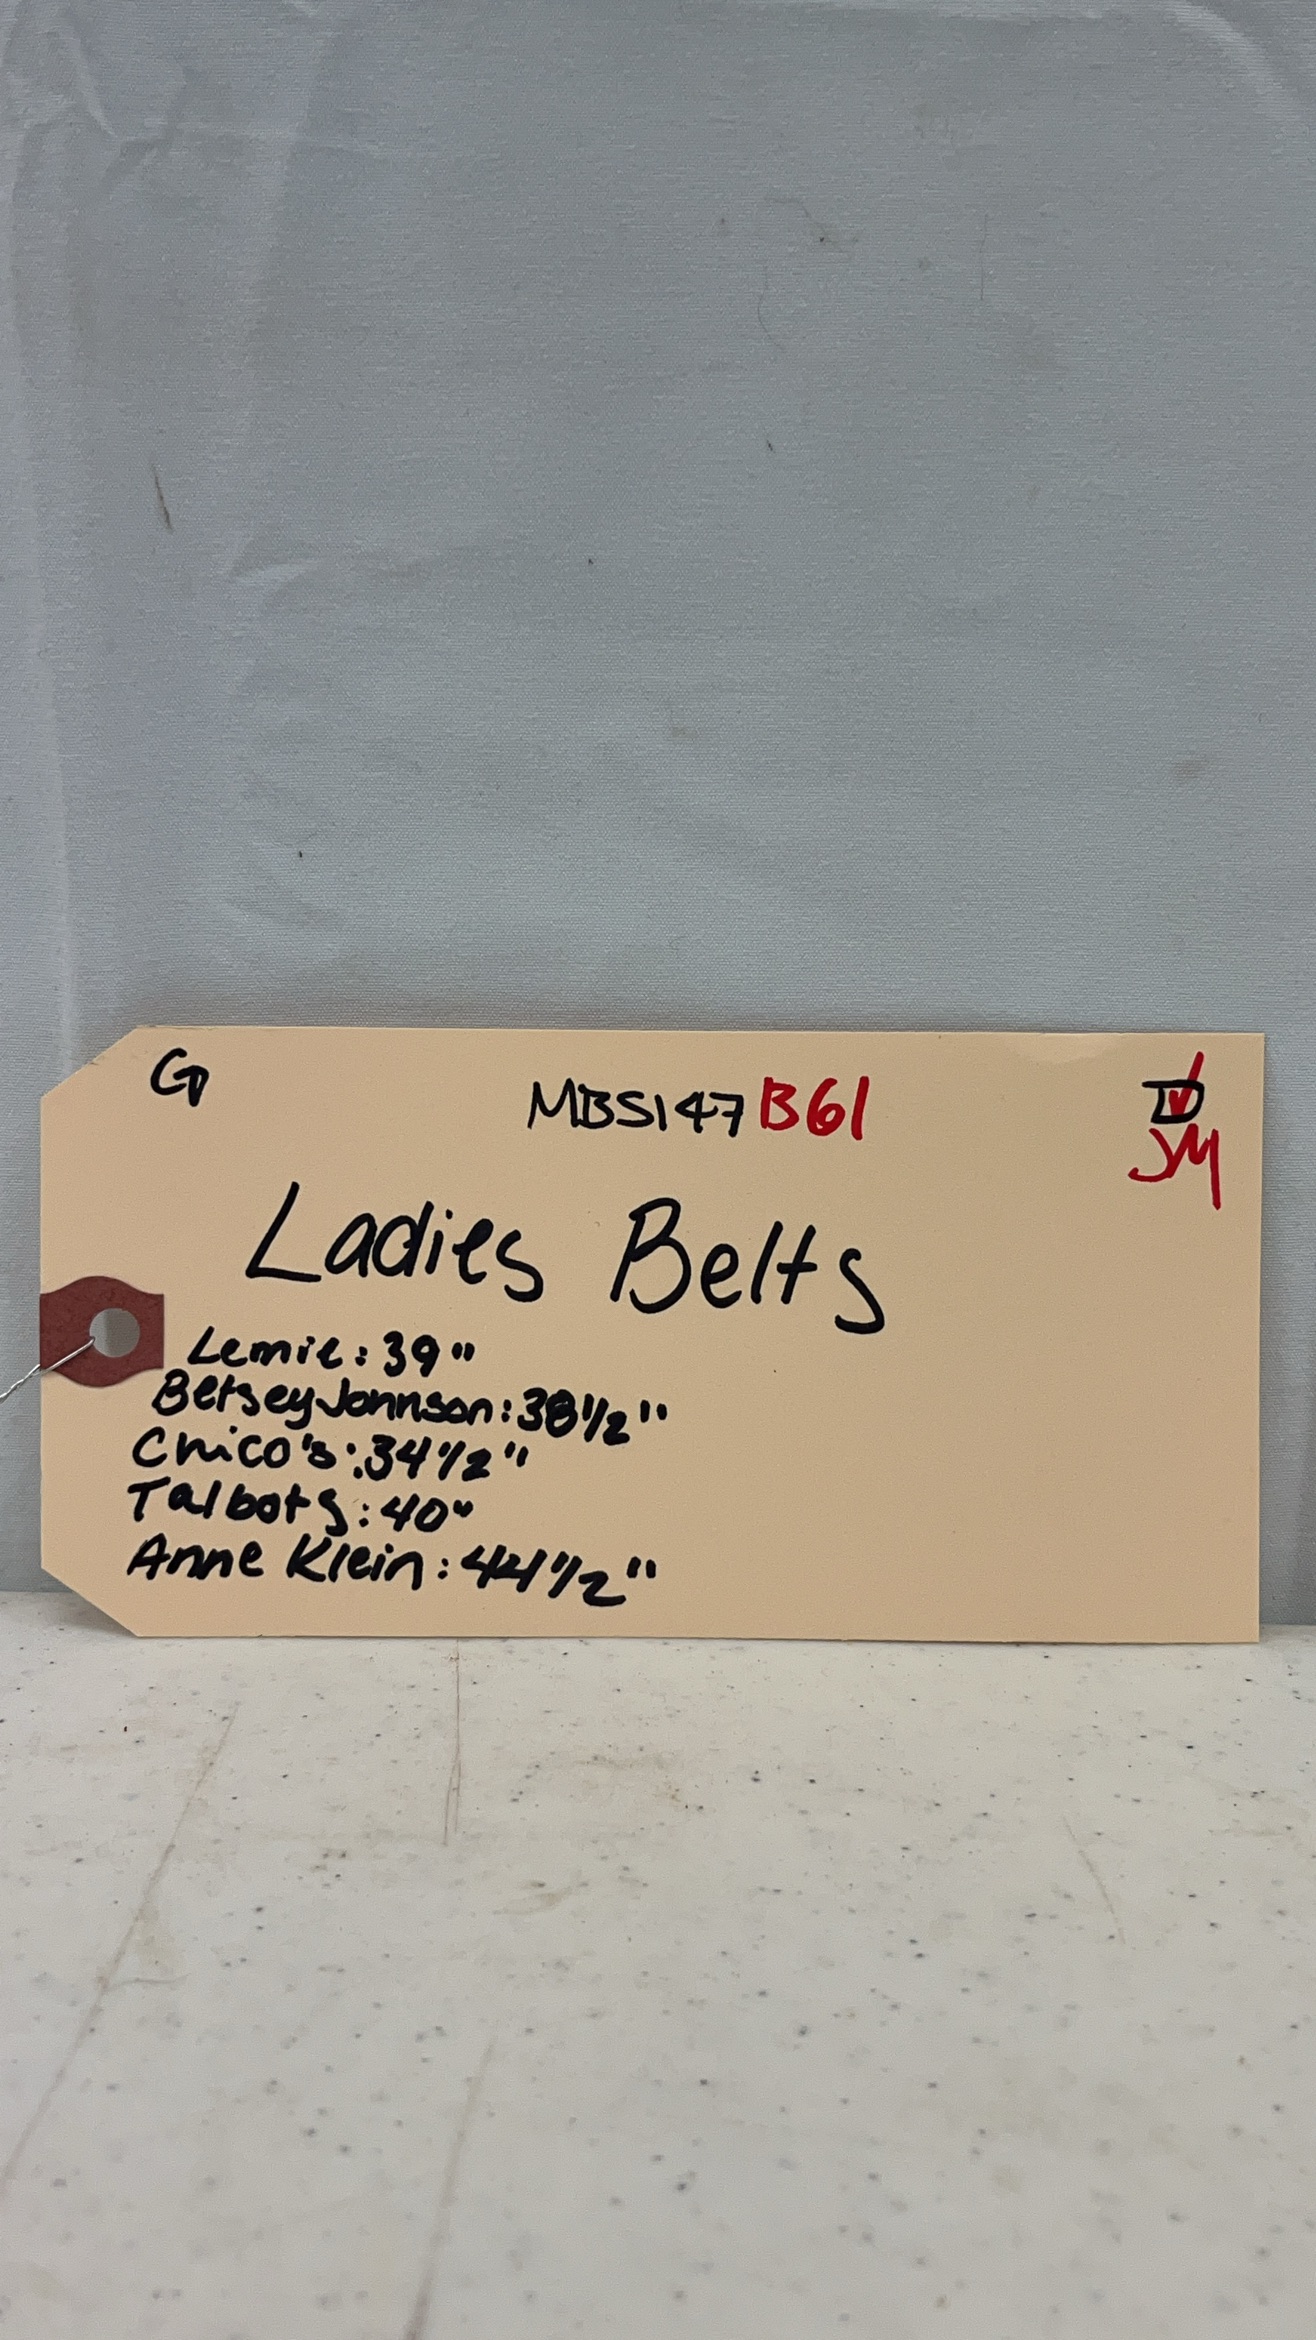 G
MBS147 B61
D
JM
Ladies Belts
Lemie: 39"
Betsey Johnson: 38 1/2"
Chico's: 34 1/2"
Talbots: 40"
Anne Klein: 44 1/2"